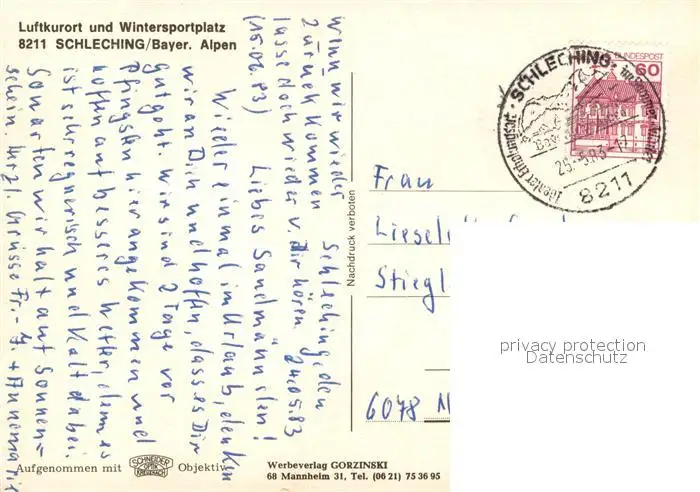 Luftkurort und Wintersportplatz
8211 SCHLECHING/Bayer. Alpen
Schleching, den
24.05.83
Liebes Sandmännlein!
Wieder einmal im Urlaub, denken
wir an Dich und hoffen, dass es Dir
gut geht. Wir sind 2 Tage vor
Pfingsten hier angekommen und
hoffen auf besseres Wetter, denn es
ist sehr regnerisch und kalt dabei.
So warten wir halt auf Sonnen=
schein. Herzl. Grüsse Fr.- J. + Annemarie
wenn wir wieder
zurück kommen
lasse doch wieder v. Dir hören.
(15.06.83)
Nachdruck verboten
DEUTSCHE BUNDESPOST
60
SCHLECHING
8211
Frau
Stiegl
6078
privacy protection
Datenschutz
Aufgenommen mit
SCHNEIDER
OPTIK
KREUZNACH
Objektiv
Werbeverlag GORZINSKI
68 Mannheim 31, Tel. (06 21) 75 36 95